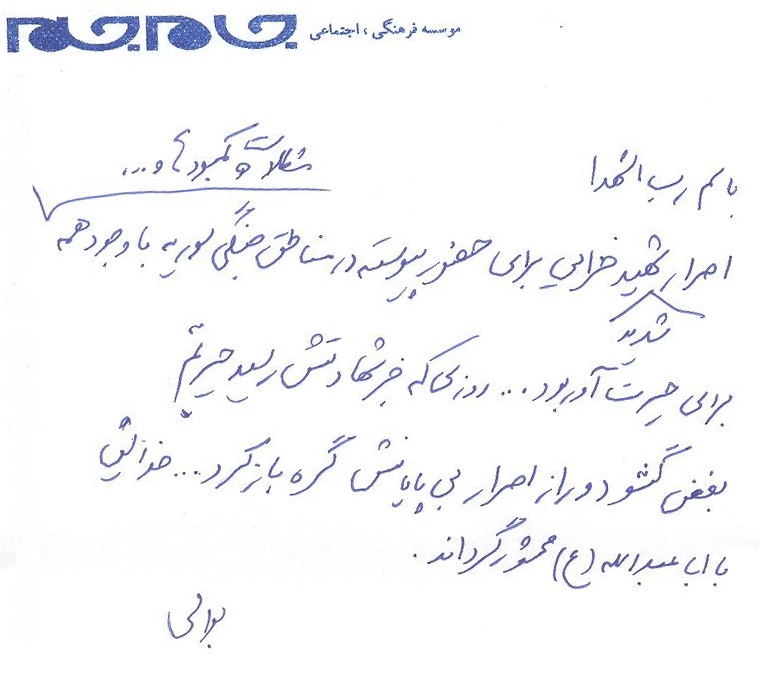 موسسه فرهنگی، اجتماعی
جام جم
باسم رب الشهدا
مشکلات و کمبودها و...
اصرار شهید خزایی برای حضور پیوسته در مناطق جنگی سوریه با وجود همه
شدید
برای حیرت آور بود... روزی که خبر شهادتش رسید حیرتم
بغض گشود و راز اصرار بی پایانش گره باز کرد... خدایش
با اباعبدالله (ع) محشور گرداند.